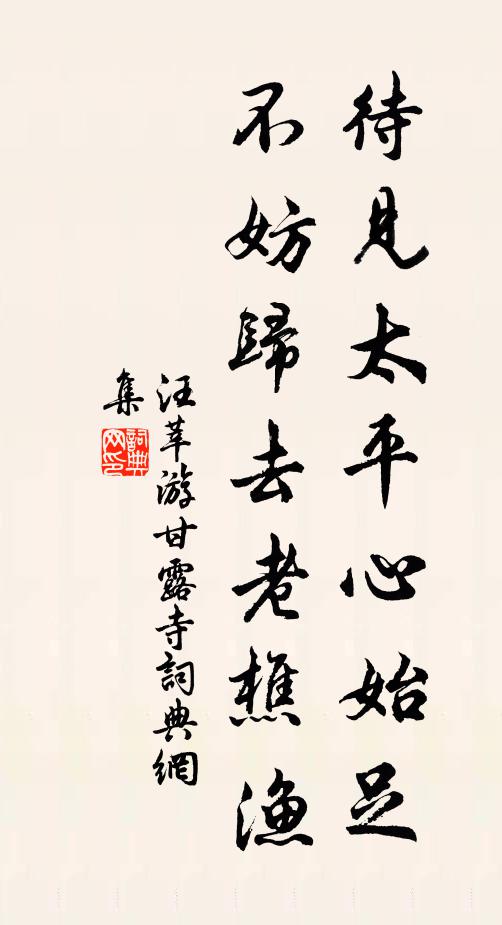 待見太平心始足
不妨歸去老樵漁
汪莘游甘露寺詞典網
集
詞典
网印